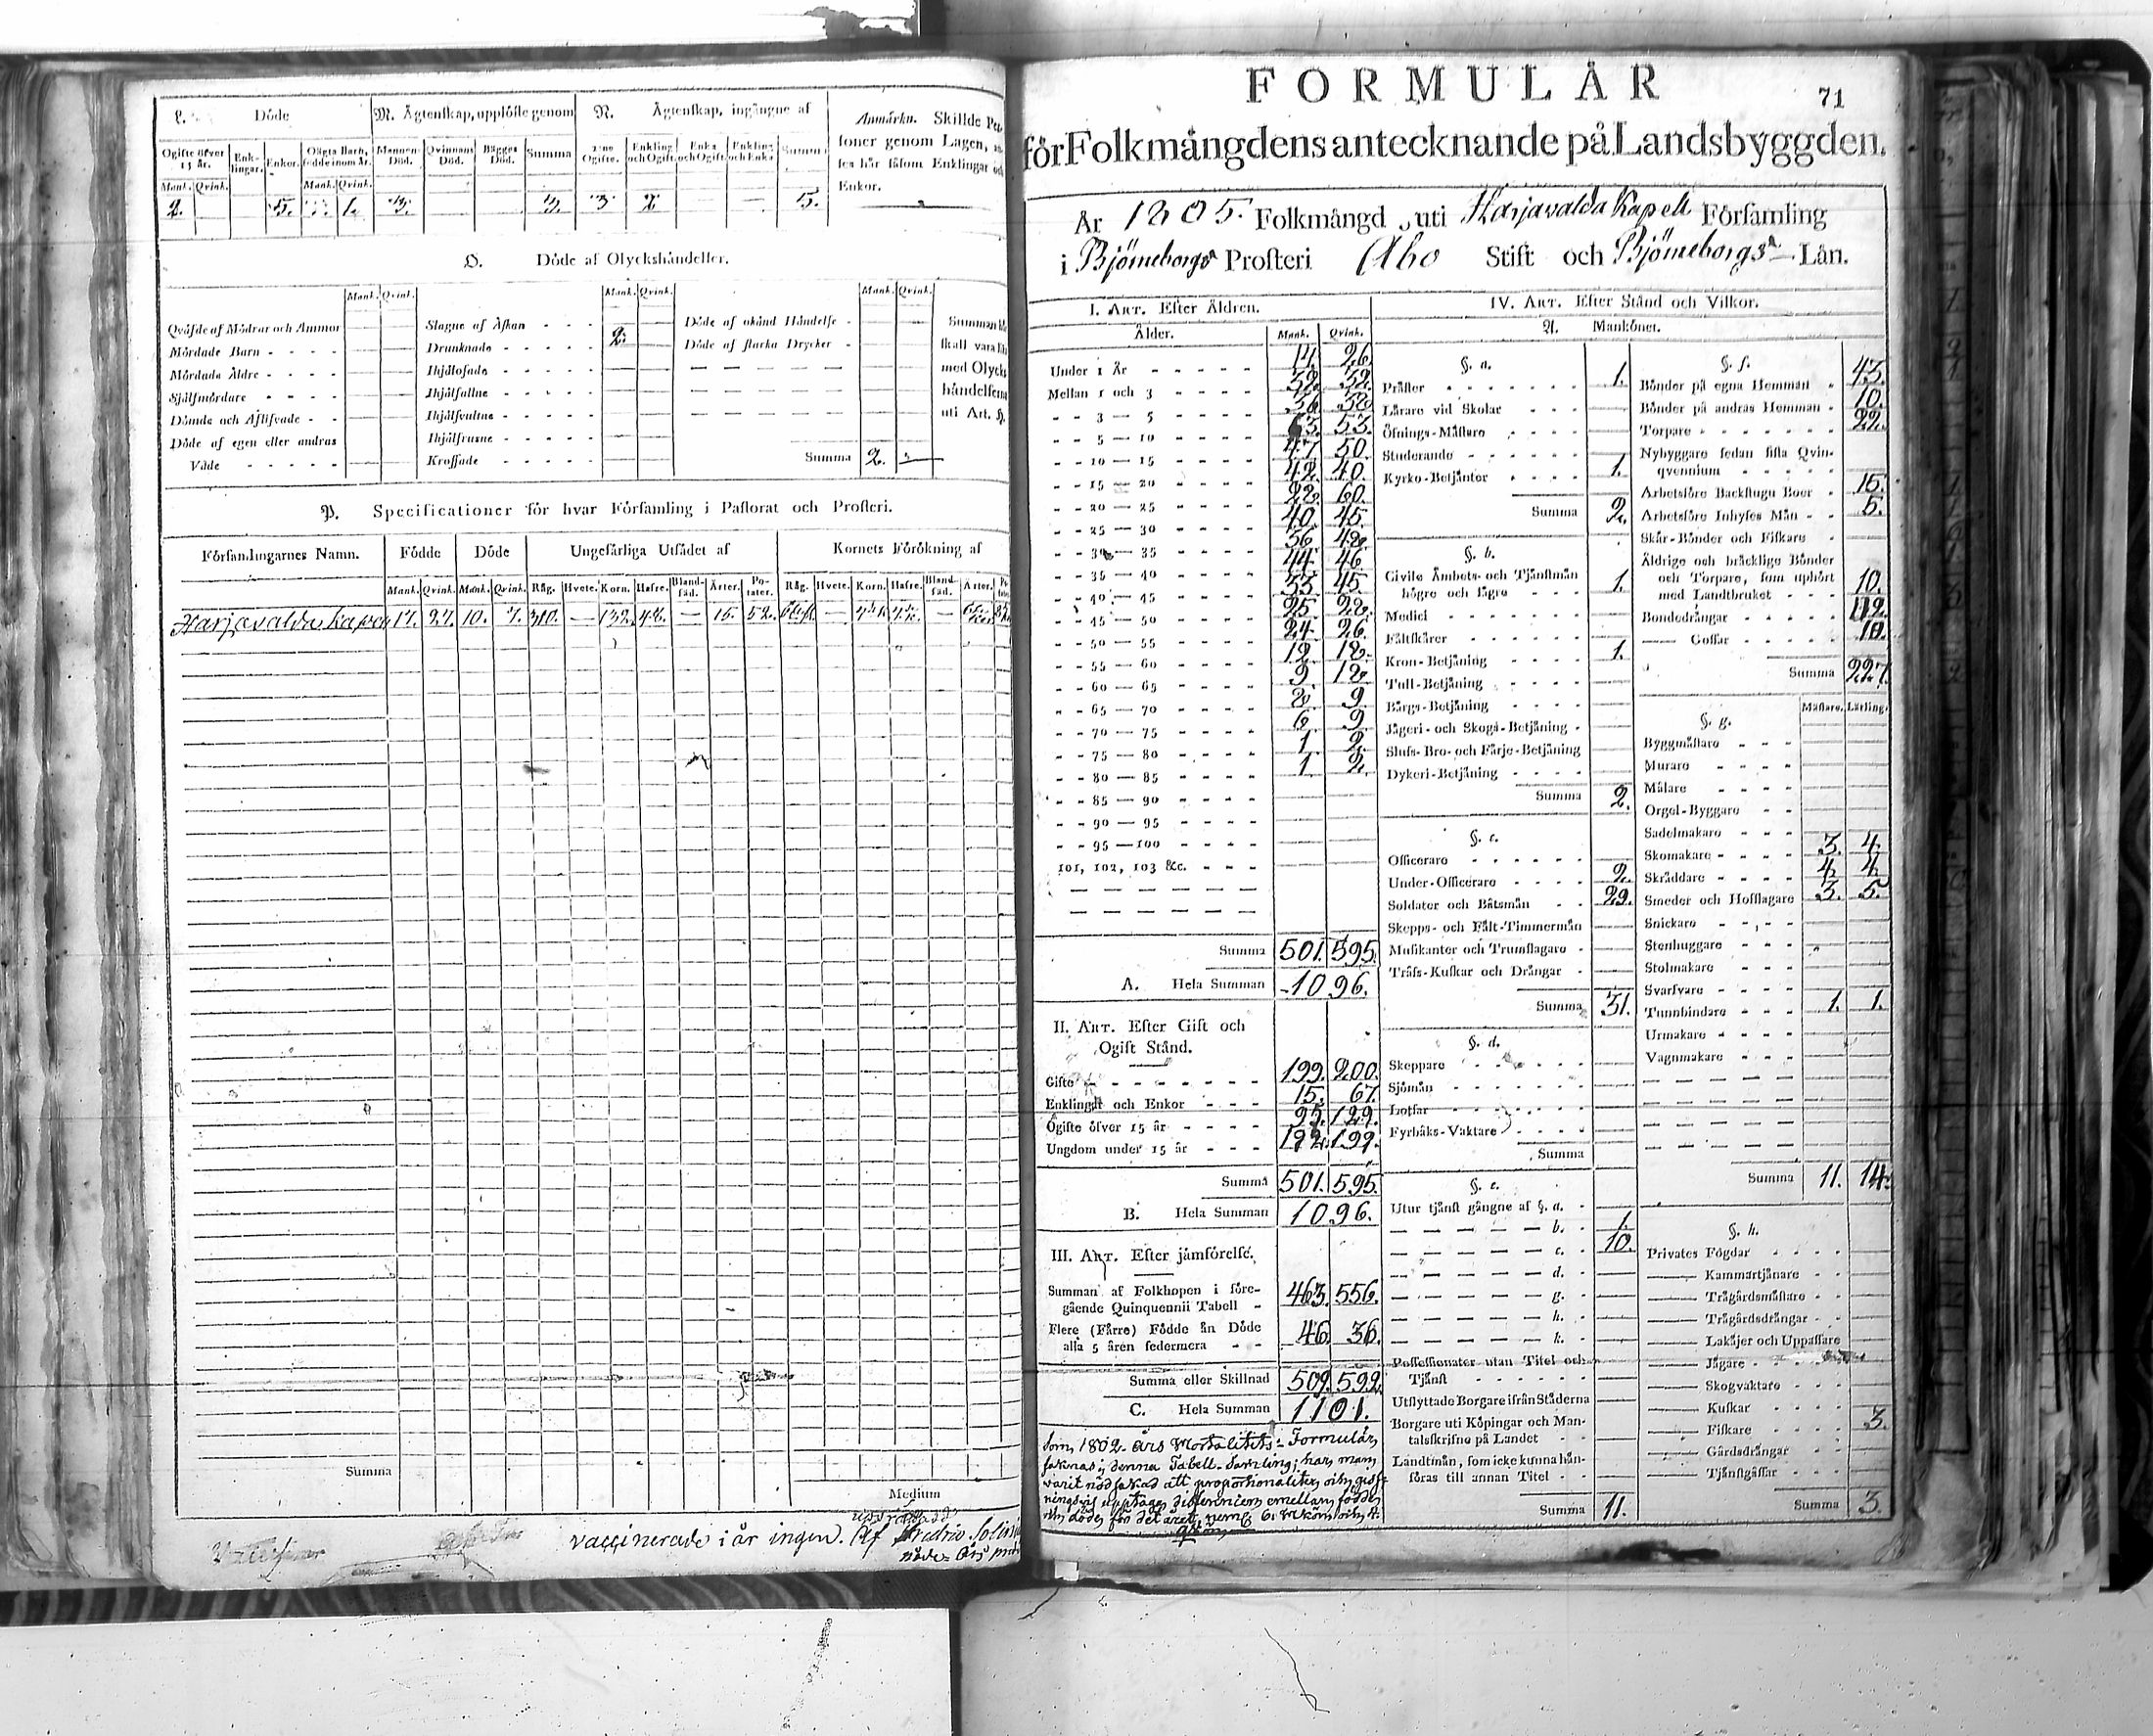 L. Döde
M. Ägtenskap, upplöste genom
N. Ägtenskap, ingångne af
Anmärkn. Skillde Per-
soner genom Lagen, 
ses här såsom Enklingar och
Enkor.
Ogifte öfver 15 år. Enk-lingar. Enkor. Oägta Barn, födde inom år. Mannens Död. Qvinnans Död. Bägges Död. Summa Ogifte. Enkling och Ogift. Enka och Ogift. Enkling och Enka Summa
Mank. Qvink. Mank. Qvink.
2. 5. 1. 3. 3. 3 2 — — 5.
O. Döde af Olyckshändelser.
Mank. Qvink. Mank. Qvink. Mank. Qvink.
Qväfde af Mödrar och Ammor
Mördade Barn - - - -
Mördade Äldre - - - -
Sjålfmördare - - - -
Dömde och Aflifvade - -
Döde af egen eller andras
Våde - - - - -
Slagne af Åskan - - -
Drunknade - - - - - 2.
Ihjälosade - - - -
Ihjälfallne - - - -
Ihjälsvultne - - - -
Ihjälfrusne - - - -
Krossade - - - - -
Döde af okänd Händelse -
Döde af starka Drycker -
Summa 2. —
Summan
skall vara
med Olycks
händelserna
uti Art. H.
P. Specificationer för hvar Församling i Pastorat och Prosteri.
Församlingarnes Namn. Födde Döde Ungefärliga Utsädet af Kornets Förökning af
Mank. Qvink. Mank. Qvink. Råg. Hvete. Korn. Hafre. Bland-säd. Ärter. Po-tater. Råg. Hvete. Korn. Hafre. Bland-säd. Ärter.
Harjavalda 17. 27. 10. 7. 310. — 132. 48. — 15. 52.
Summa
Medium
vaccinerade i år ingen. Af Fredric
FORMULÄR
71
för Folkmängdens antecknande på Landsbyggden.
År 1805. Folkmängd uti Harjavalda Kapell Församling
i Björneborgs Prosteri Åbo Stift och Björneborgs Län.
I. Art. Efter Åldren.
Ålder. Mank. Qvink.
Under 1 År - - - - - 14. 26.
Mellan 1 och 3 - - - - 32. 32.
- - 3 — 5 - - - - 36.
- - 5 — 10 - - - - 63. 53.
- - 10 — 15 - - - - 47. 50.
- - 15 — 20 - - - - 42. 40.
- - 20 — 25 - - - - 60.
- - 25 — 30 - - - - 40. 45.
- - 30 — 35 - - - - 36 48.
- - 35 — 40 - - - - 44. 46.
- - 40 — 45 - - - - 33. 45.
- - 45 — 50 - - - - 25. 28.
- - 50 — 55 - - - - 24. 26.
- - 55 — 60 - - - - 12. 18.
- - 60 — 65 - - - - 9. 18.
- - 65 — 70 - - - - 8. 9.
- - 70 — 75 - - - - 6. 9.
- - 75 — 80 - - - - 1. 2.
- - 80 — 85 - - - - 1. 2.
- - 85 — 90 - - - -
- - 90 — 95 - - - -
- - 95 — 100 - - - -
101, 102, 103 &c. - - -
Summa 501. 595.
A. Hela Summan 1096.
II. Art. Efter Gift och
Ogift Stånd.
Gifte - - - - - - - 199. 200.
Enkling och Enkor - - - 15. 67.
Ogifte öfver 15 år - - - - 95. 129.
Ungdom under 15 år - - - 192. 199.
Summa 501. 595.
B. Hela Summan 1096.
III. Art. Efter jämförelse.
Summan af Folkhopen i före-
gående Quinquennii Tabell - 463. 556.
Flere (Färre) Födde än Döde
alla 5 åren sedermera - - 46. 36.
Summa eller Skillnad 509. 592.
C. Hela Summan 1101.
Som 1802 års Mortalitets-Formulär
saknas i denna Tabell-Samling; har man
varit nödsakad att
emellan födde
och döde för det året, 6. Mkön och 4.
qkön
IV. Art. Efter Stånd och Vilkor.
A. Mankönet.
§. a.
Präster - - - - - - - 1.
Lärare vid Skolar - - -
Öfnings-Mästare - - - -
Studerande - - - - - -
Kyrko-Betjänter - - - - 1.
Summa 2.
§. b.
Civile Ämbets- och Tjänstmän
högre och lägre - - - 1.
Medici - - - - - - -
Fältskärer - - - - - -
Kron-Betjäning - - - - 1.
Tull-Betjäning - - - -
Bärgs-Betjäning - - - -
Jägeri- och Skogs-Betjäning -
Sluss- Bro- och Färje-Betjäning
Dykeri-Betjäning - - - -
Summa 2.
§. c.
Officerare - - - - - -
Under-Officerare - - - - 2.
Soldater och Båtsmän - - 29.
Skepps- och Fält-Timmermän
Musikanter och Trumslagare -
Träss-Kuskar och Drängar -
Summa 31.
§. d.
Skeppare - - - - - -
Sjömän - - - - - - -
Lotsar - - - - - - -
Fyrbåks-Vaktare - - - -
Summa
§. e.
Utur tjänst gångne af §. a. -
— — — — — b. - 1.
— — — — — c. - 10.
— — — — — d. -
— — — — — g. -
— — — — — h. -
— — — — — k. -
Possessionater utan Titel och
Tjänst - - - - - -
Utflyttade Borgare ifrån Städerna
Borgare uti Köpingar och Man-
talsskrifne på Landet - -
Landtmän, som icke kunna hän-
föras till annan Titel - -
Summa 11.
§. f.
Bönder på egna Hemman - 43.
Bönder på andras Hemman - 10.
Torpare - - - - - - - 22.
Nybyggare sedan sista Qvin-
qvennium - - - - -
Arbetsföre Backstugu Boer - 15.
Arbetsföre Inhyses Män - - 5.
Skär-Bönder och Fiskare -
Äldrige och bräcklige Bönder
och Torpare, som uphört
med Landtbruket - - - 10.
Bondedrängar - - - - - 112.
—— Gossar - - - - - 10.
Summa 227.
Mästare. Lärling.
§. g.
Byggmästare - - -
Murare - - - -
Målare - - - -
Orgel-Byggare - -
Sadelmakare - - -
Skomakare - - - - 3. 4.
Skräddare - - - - 4. 4.
Smeder och Hofslagare 3. 5.
Snickare - - - -
Stenhuggare - - -
Stolmakare - - -
Svarfvare - - - -
Tunnbindare - - - 1. 1.
Urmakare - - - -
Vagnmakare - - -
Summa 11. 14.
§. h.
Privates Fogdar - - - -
—— Kammartjänare - -
—— Trägårdsmästare - -
—— Trägårdsdrängar - -
—— Lakäjer och Uppassare
—— Jägare - - - -
—— Skogvaktare - - -
—— Kuskar - - - -
—— Fiskare - - - - 3.
—— Gårdsdrängar - -
—— Tjänstgåssar - - -
Summa 3.